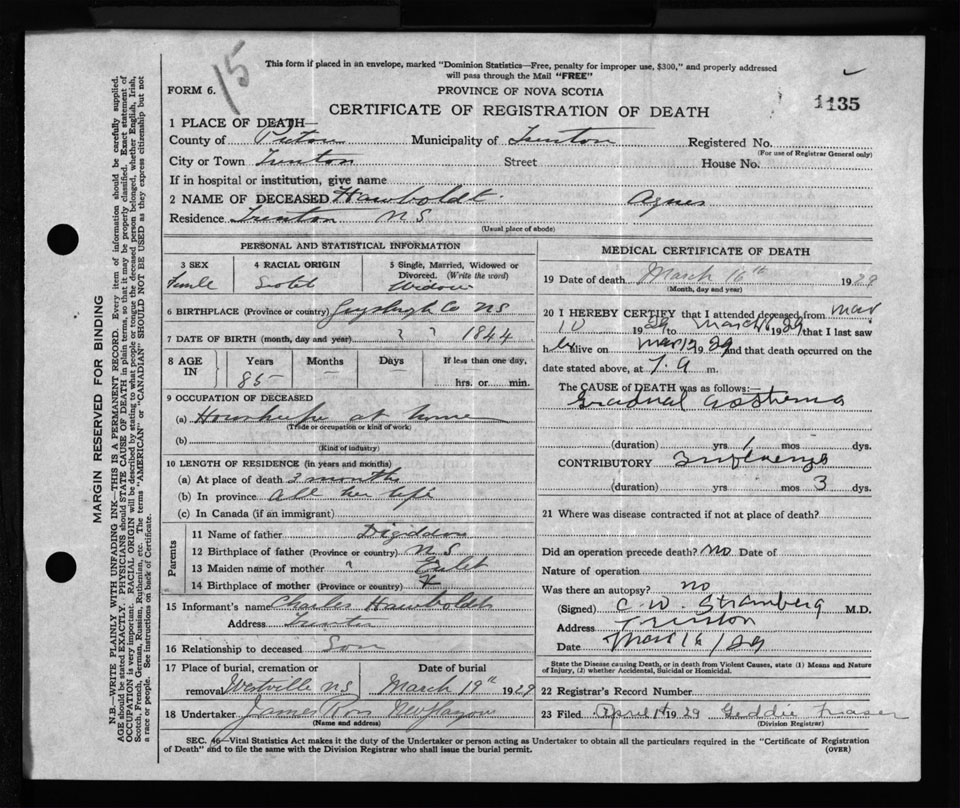 15
This form if placed in an envelope, marked "Dominion Statistics—Free, penalty for improper use, $300," and properly addressed
will pass through the Mail "FREE"
FORM 6.
PROVINCE OF NOVA SCOTIA
CERTIFICATE OF REGISTRATION OF DEATH
1135
1 PLACE OF DEATH—
County of Pictou Municipality of Trenton Registered No.
(For use of Registrar General only)
City or Town Trenton Street House No.
If in hospital or institution, give name
2 NAME OF DECEASED Hawboldt Agnes
Residence Trenton N S
(Usual place of abode)
MARGIN RESERVED FOR BINDING
N.B.—WRITE PLAINLY WITH UNFADING INK—THIS IS A PERMANENT RECORD. Every item of information should be carefully supplied.
AGE should be stated EXACTLY. PHYSICIANS should STATE CAUSE OF DEATH in plain terms, so that it may be properly classified. Exact statement of
OCCUPATION is very important. RACIAL ORIGIN will be described by stating to what people or tongue the deceased person belonged, whether English, Irish,
Scotch, French, German, Russian, Ruthenian, etc. The terms "AMERICAN" or "CANADIAN" SHOULD NOT BE USED as they express citizenship but not
a race or people. See instructions on back of Certificate.
PERSONAL AND STATISTICAL INFORMATION
3 SEX
Female
4 RACIAL ORIGIN
Scotch
5 Single, Married, Widowed or
Divorced. (Write the word)
Widow
6 BIRTHPLACE (Province or country) Guysborough Co N S
7 DATE OF BIRTH (month, day and year) ? ? 1844
8 AGE IN
Years Months Days If less than one day,
85 hrs. or min.
9 OCCUPATION OF DECEASED
(a) Housekeeper at home
(Trade or occupation or kind of work)
(b)
(Kind of industry)
10 LENGTH OF RESIDENCE (in years and months)
(a) At place of death months
(b) In province all her life
(c) In Canada (if an immigrant)
Parents
11 Name of father Digddon
12 Birthplace of father (Province or country) N S
13 Maiden name of mother "
14 Birthplace of mother (Province or country)
15 Informant's name Charles Hawboldt
Address Trenton
16 Relationship to deceased Son
17 Place of burial, cremation or Date of burial
removal Westville N S March 19th 1929
18 Undertaker James Ross New Glasgow
(Name and address)
MEDICAL CERTIFICATE OF DEATH
19 Date of death March 16th 1929
(Month, day and year)
20 I HEREBY CERTIFY that I attended deceased from Mar
10 1929 to March 16 1929 that I last saw
her alive on Mar 1929 and that death occurred on the
date stated above, at 7.a m.
The CAUSE OF DEATH was as follows:—
Gradual asthenia
(duration) yrs 1 mos dys.
CONTRIBUTORY Influenza
(duration) yrs mos 3 dys.
21 Where was disease contracted if not at place of death?
Did an operation precede death? No Date of
Nature of operation
Was there an autopsy? no
(Signed) C. W. Stramberg M.D.
Address Trenton
Date Mar 16/29
State the Disease causing Death, or in death from Violent Causes, state (1) Means and Nature
of Injury, (2) whether Accidental, Suicidal or Homicidal.
22 Registrar's Record Number
23 Filed April 1st 1929 Geddie Fraser
(Division Registrar)
SEC. 46—Vital Statistics Act makes it duty of the Undertaker or person acting as Undertaker to obtain all the particulars required in the "Certificate of Registration
of Death" and to file the same with the Division Registrar who shall issue the burial permit.
(OVER)